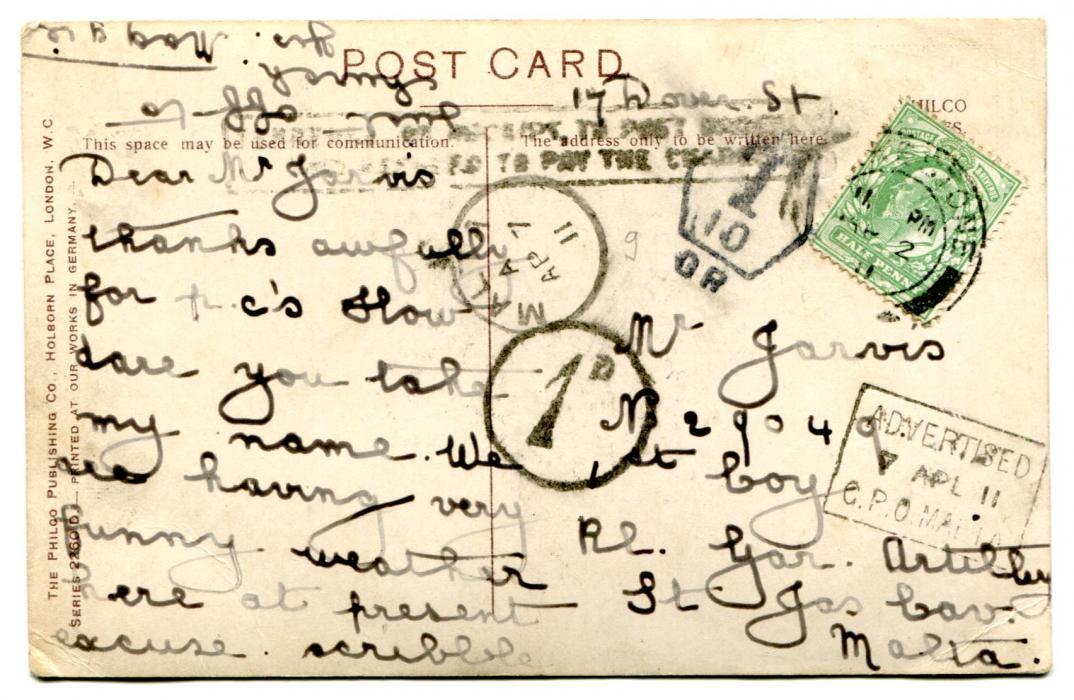 POST CARD
17 Dover. St.
This space may be used for communication.
The address only to be written here.
TO PAY THE
Dear Mr Jarvis
thanks awfully
for p.c's How
dare you take
my name. We
are having very
funny weather
here at present
excuse. scribble
Mr Jarvis
No 29049.
1st Coy
Rl. Gar. Artillery
St Jas Cav.
Malta.
MALTA
AP 7
11
1D
1
10
OR
9
PM
2
11
POSTAGE
HALF PENNY
ADVERTISED
7 APL 11
G.P.O. MALTA
THE PHILCO PUBLISHING CO., HOLBORN PLACE, LONDON, W.C.
PRINTED AT OUR WORKS IN GERMANY.